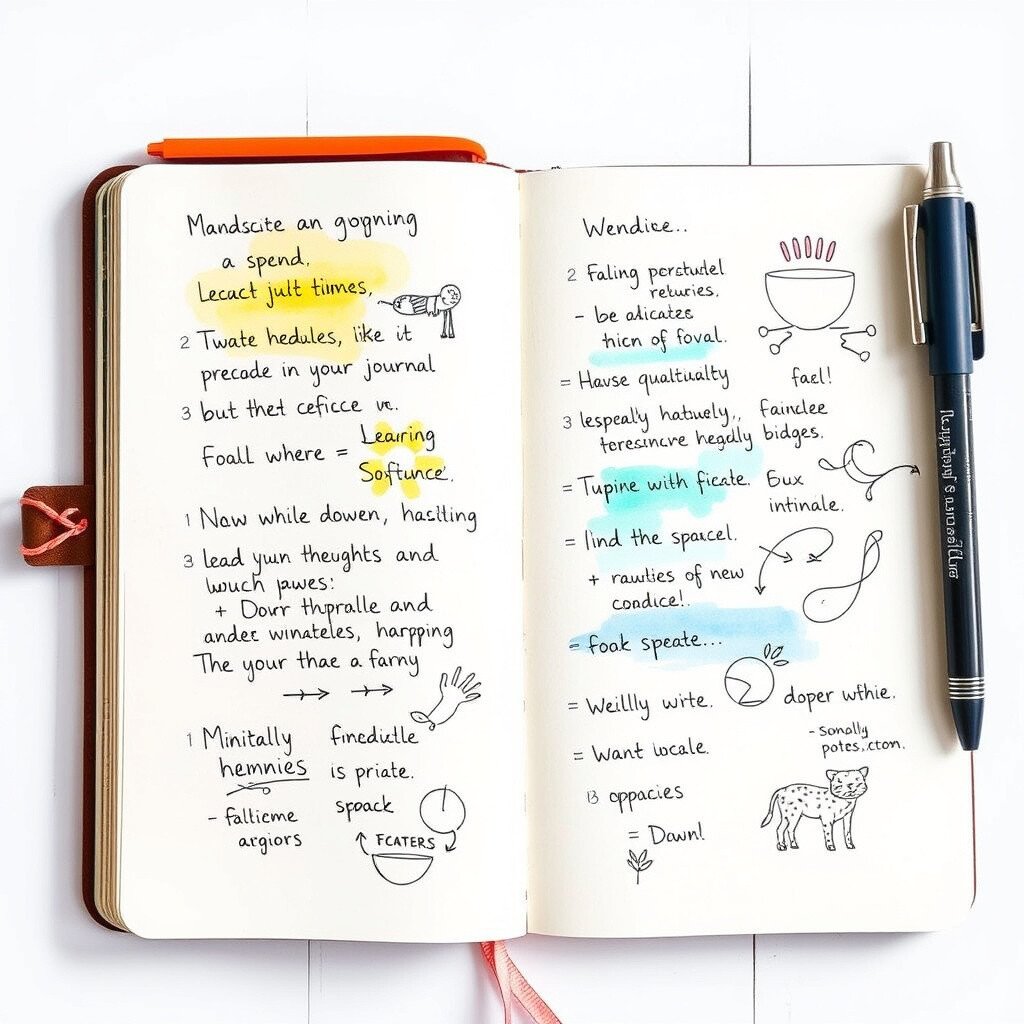 Mandscite an gopgning
a spend.
Lecact jult tiimes,
2 Twate hedules, like it
precade in your journal
3 but thet cefícce vc.
Foall where = Learirg
Softunce.
1 Naw while dowen, hasltting
3 lead yun theughts and
wuch pawes:
+ Dorr thupralle and
andec winateles, harpping
The your thae a farny
1 Minitally
hemnies
- falticme
argiors
fincdictle
is priate.
spack
FCATERS
Wendice..
2 Faling perstudel
returies.
- be alicates
hicn of foval.
= Havse qualtualty
fael!
3 lespealy hatwely,, Fainclee
teresincre hegdly bidges.
= Tupine with ficate. Eux
intinale.
= lind the sparcel.
+ raulties of new
condice!.
= foak speate...
= Weillly write. doper wthie.
= Want locale.
- sonally
potes,.cton.
B oppacies
= Dawn!